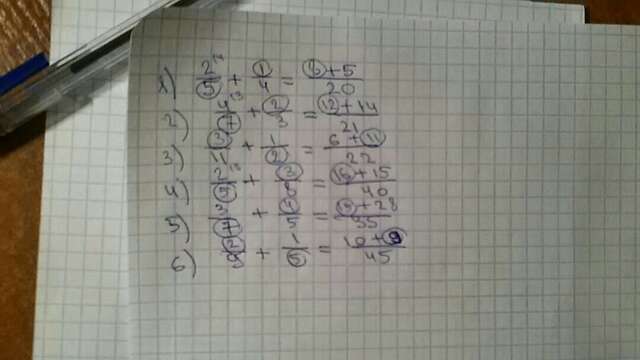 1) 2/5 + 1/4 = 8+5/20
2) 4/7 + 2/3 = 12+14/21
3) 3/11 + 1/2 = 6+11/22
4) 2/5 + 3/8 = 16+15/40
5) /7 + /5 = +28/35
6) 2/9 + 1/5 = 10+9/45